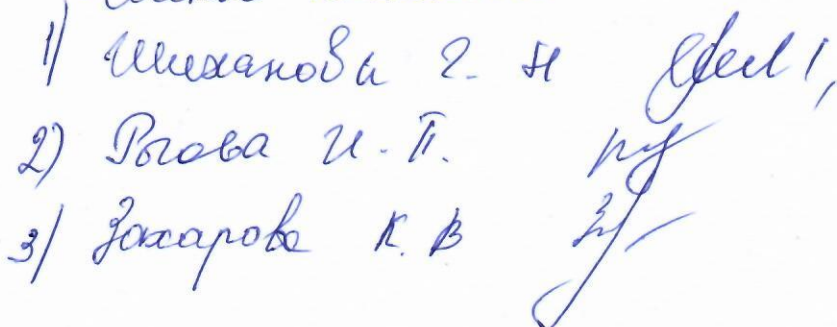 1) Шиханова Г. Н
2) Рыгова И. П.
3) Захарова К. В